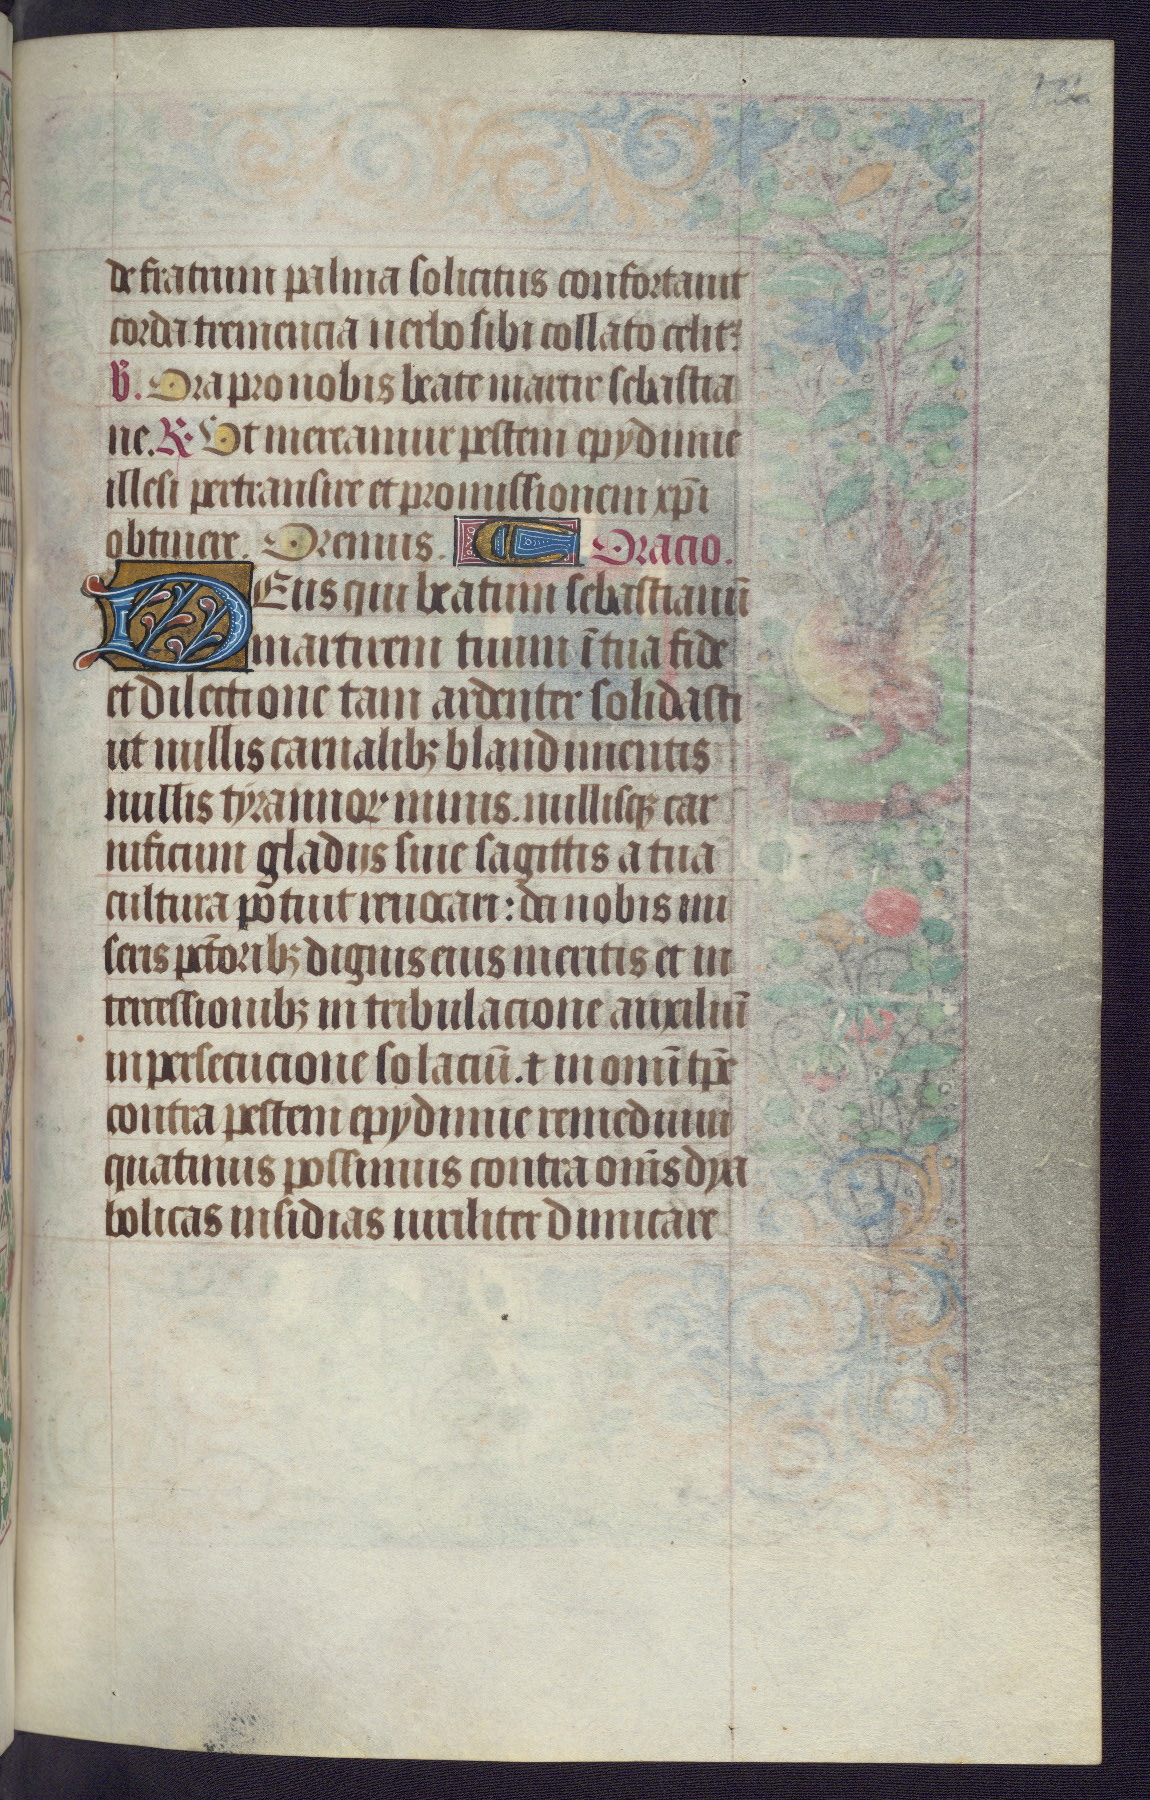 de fratrum palma solicitus confortauit
corda tremencia uerbo sibi collato celit᷒
V̕. Ora pro nobis beate martir sebastia
ne. R̕. Vt mereamur pestem epydimie
illesi pertransire et promissionem xp̄i
obtinere. Oremus. Oracio.
DEus qui beatum sebastianū
martirem tuum ī tua fide
et dilectione tam ardenter solidasti
ut nullis carnalibꝫ blandimentis
nullis tyrannoꝝ minis. nullisqꝫ car
nificum gladijs siue sagittis a tua
cultura potuit reuocari : da nobis mi
seris pct̄oribꝫ dignis eius meritis et in
tercessionibꝫ in tribulacione auxiliū
in persecucione solaciū. ⁊ in omī tp̄e
contra pestem epydimie remedium
quatinus possimus contra om̄s dya
bolicas insidias uiriliter dimicare